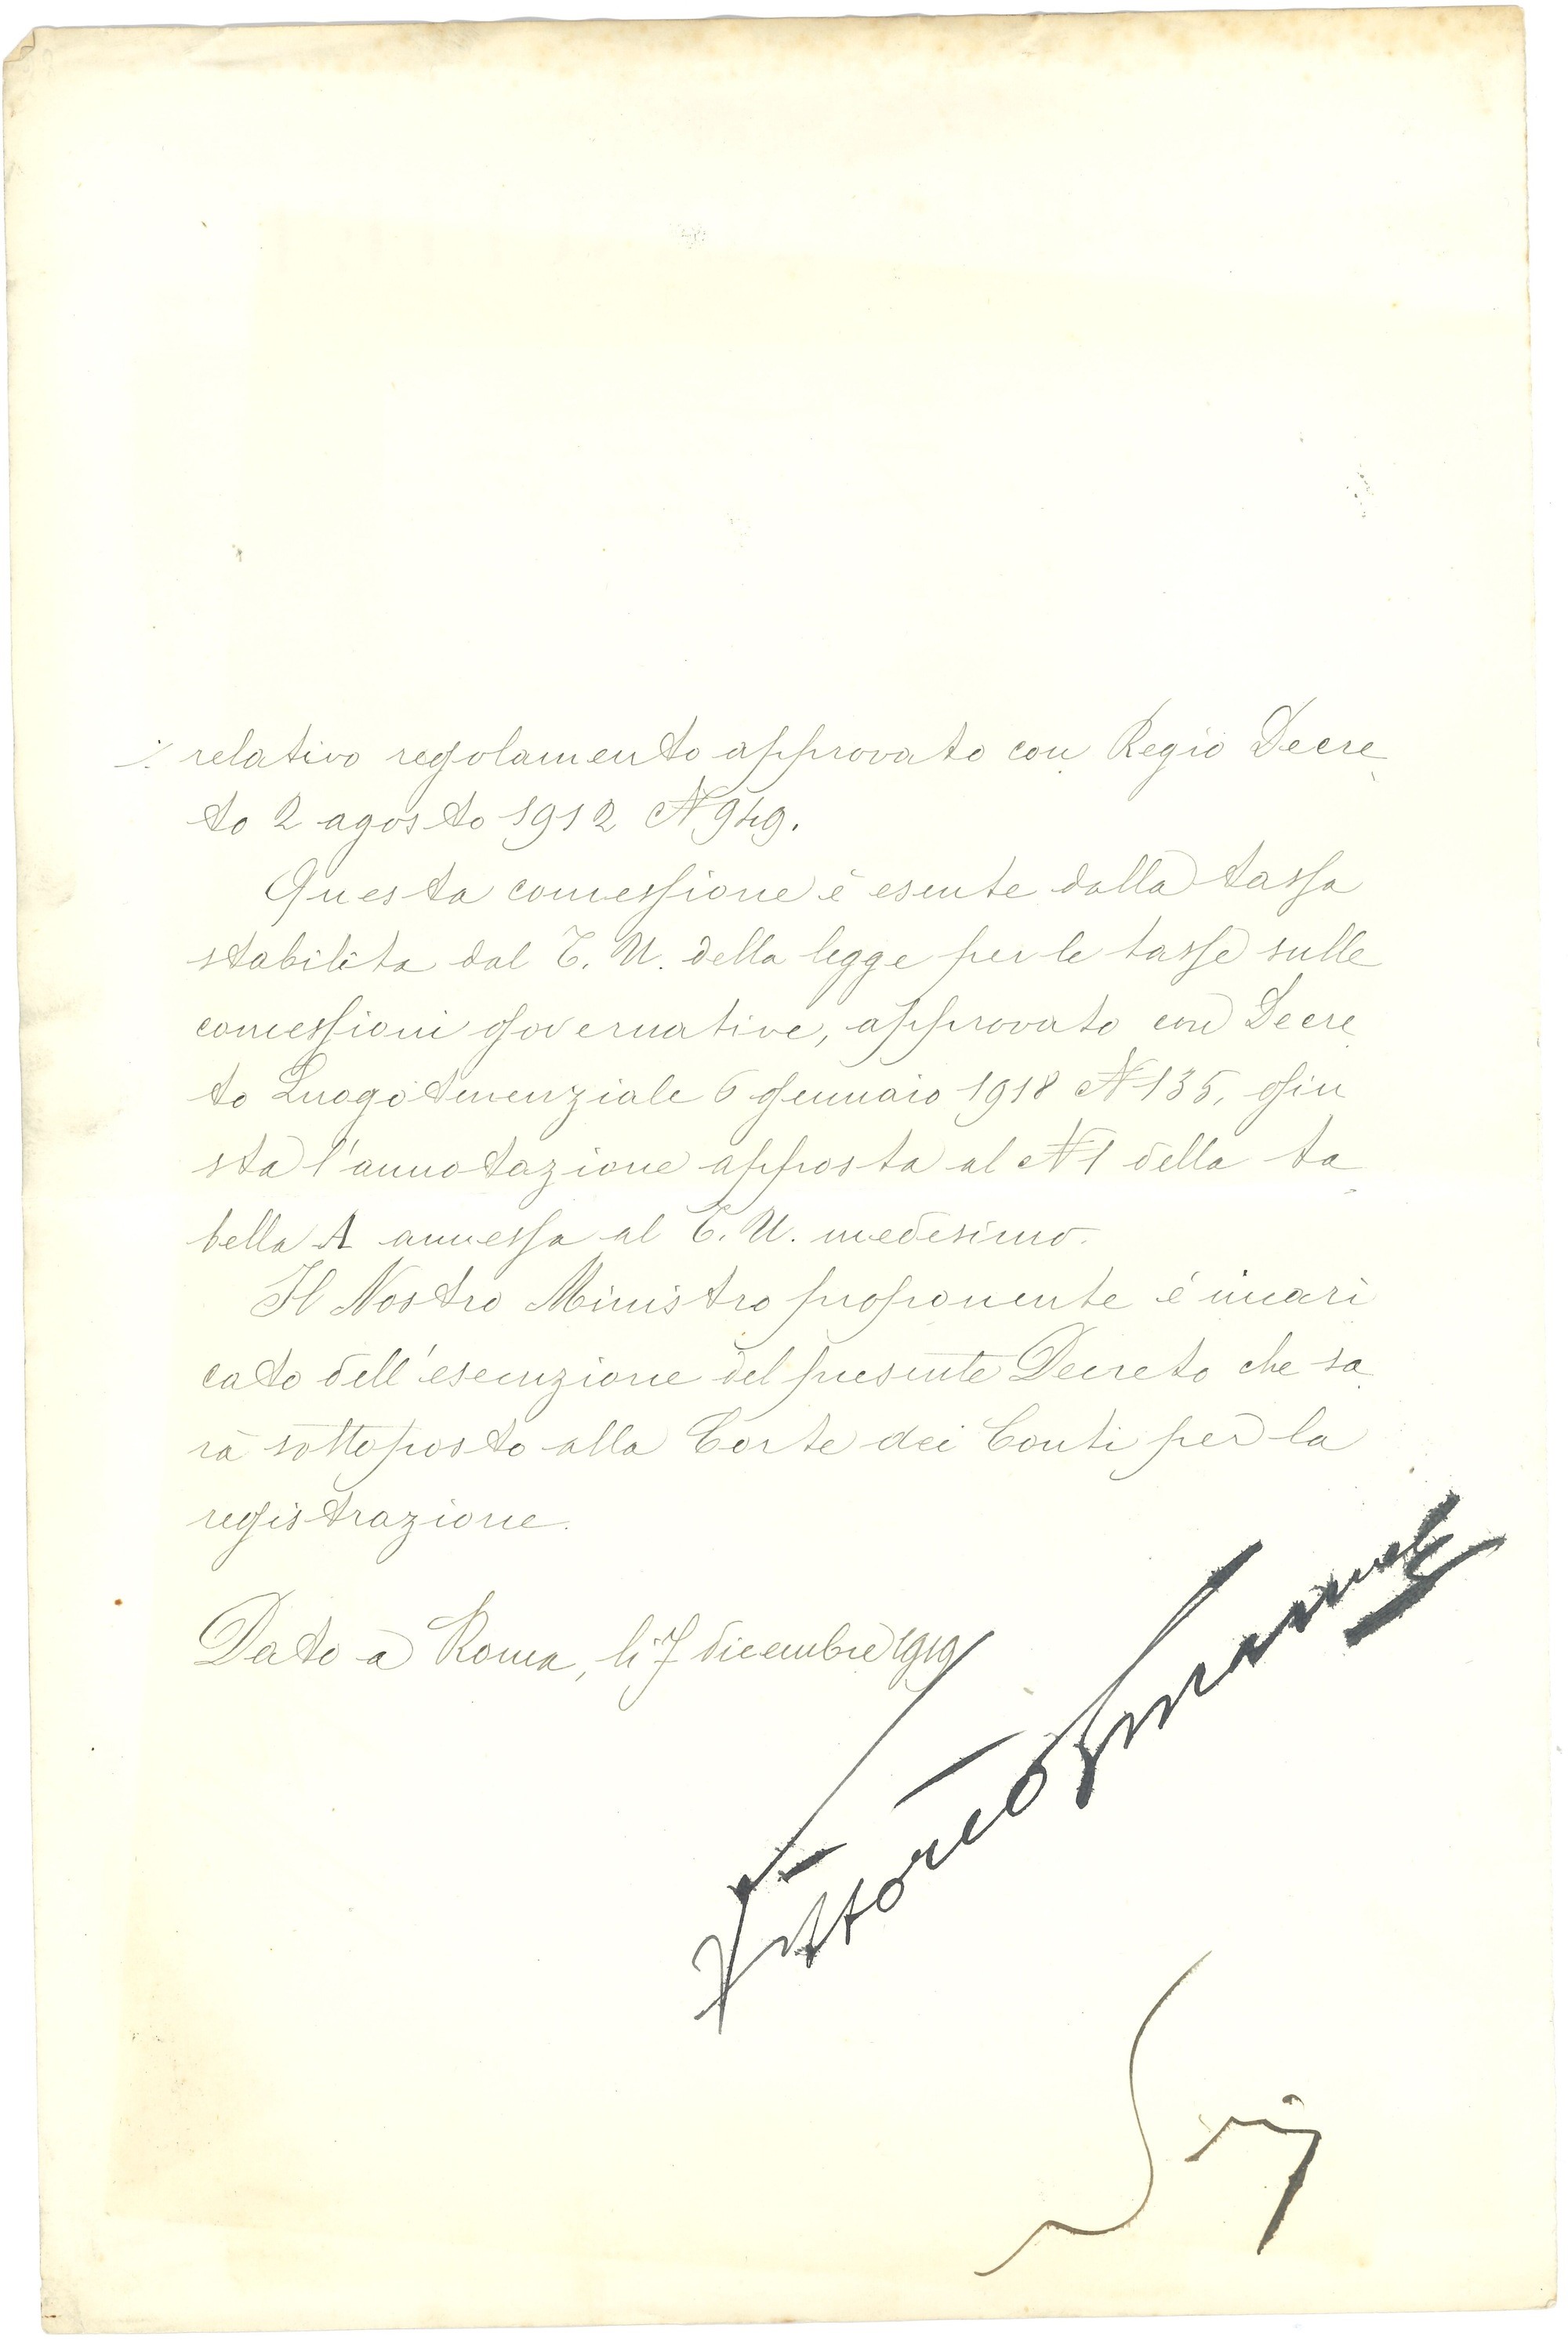 ./. relativo regolamento approvato con Regio Decre
to 2 agosto 1912 N 949.
Questa concessione è esente dalla tassa
stabilita dal T. U. della legge per le tasse sulle
concessioni governative, approvato con Decre
to Luogotenenziale 6 gennaio 1918 N 135, giu
sta l'annotazione apposta al N 1 della ta
bella A annessa al T. U. medesimo.
Il Nostro Ministro proponente è incari
cato dell'esecuzione del presente Decreto che sa
rà sottoposto alla Corte dei Conti per la
registrazione.
Dato a Roma, li 7 dicembre 1919
Vittorio Emanuele